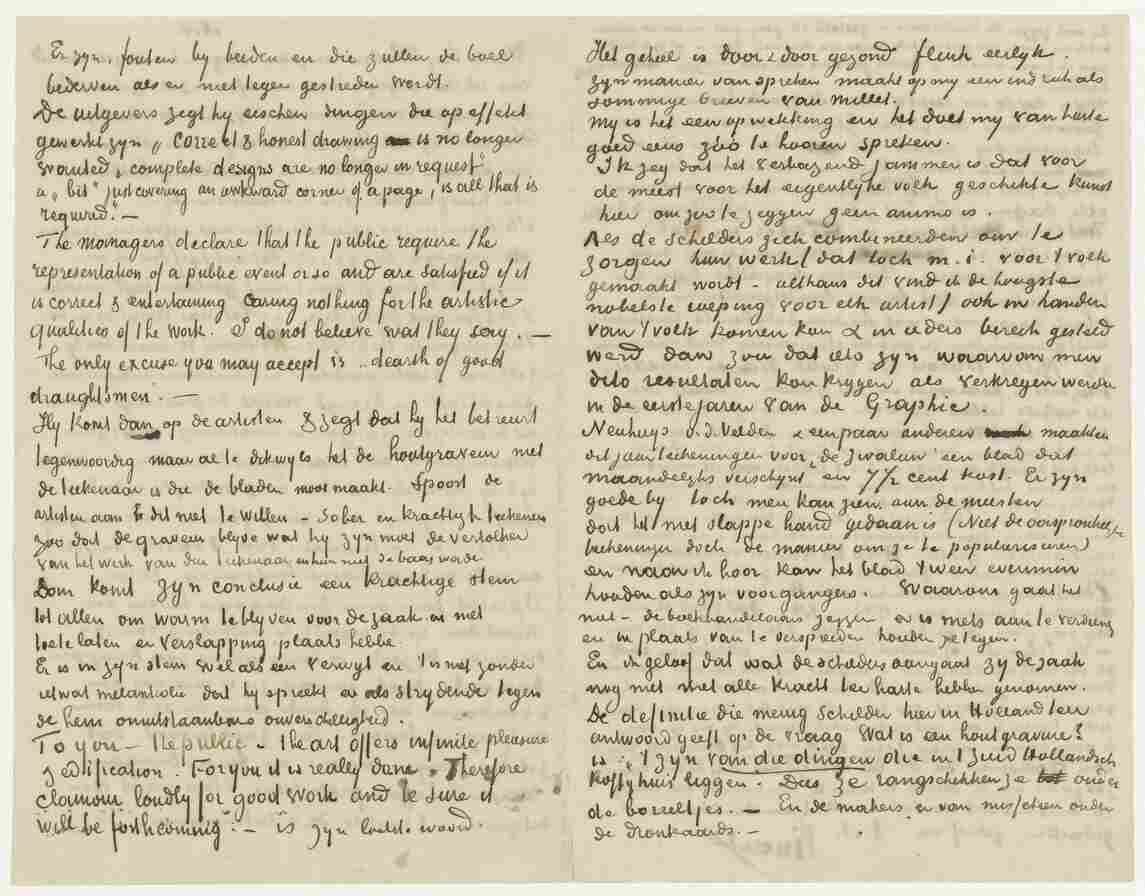 Er zyn, fouten by beiden en die zullen de boel
bederven als er niet tegen gestreden wordt.
De uitgevers zegt hy eischen dingen die op effekt
gewerkt zyn „ Correct & honest drawing is no longer
wanted, complete designs are no longer in request"
a „ bit " just covering an awkward corner of a page, is all that is
required." —
The managers declare that the public require the
representation of a public event or so and are satisfied if it
is correct & entertaining Caring nothing for the artistic
qualities of the work. I do not believe wat they say. —
The only excuse you may accept is .. dearth of good
draughtsmen. —
Hy komt dan op de artisten & zegt dat hy het betreurt
tegenwoordig maar al te dikwyls het de houtgraveur niet
de teekenaar is die de bladen mooi maakt. Spoort de
artisten aan dit niet te willen – Sober en krachtig te teekenen
zoo dat de graveur blyve wat hy zyn moet de vertolker
van het werk van den teekenaar en hem niet de baas worde
Dan komt zyn conclusie een krachtige stem
tot allen om warm te blyven voor de zaak en niet
toe te laten er verslapping plaats hebbe.
Er is in zyn stem wel als een verwyt en 't is niet zonder
ietwat melankolie dat hy spreekt en als strydende tegen
de hem onuitstaanbare onverschilligheid.
To you – the public – the art offers infinite pleasure
& edification. For you it is really done. Therefore
clamour loudly for good work and be sure it
will be forthcoming". — is zyn laatste woord.
Het geheel is door & door gezond flink eerlyk.
zyn manier van spreken maakt op my een indruk als
sommige brieven van Millet.
My is het een opwekking en het doet my van harte
goed eens zóó te hooren spreken.
Ik zeg dat het verbazend jammer is dat voor
de meest voor het eigentlyke volk geschikte kunst
hier om zoo te zeggen geen animo is.
Als de schilders zich combineerden om te
zorgen hun werk (dat toch m.i. voor 't volk
gemaakt wordt – althans dit vind ik de hoogste
nobelste roeping voor elk artist) ook in handen
van 't volk komen kan & in ieders bereik gesteld
werd dan zou dat iets zyn waarvan men
dito resultaten kon krygen als verkregen werden
in de eerste jaren van de Graphic.
Neuhuys v.d. Velden & een paar anderen maakten
dit jaar teekeningen voor „de zwaluw" een blad dat
maandelyks verschynt en 7½ cent kost. Er zyn
goede by toch men kan zien aan de meesten
dat het met slappe hand gedaan is (Niet de oorspronkelyke
teekeningen doch de manier om ze te populariseeren)
en naar ik hoor kan het blad 't weer evenmin
houden als zyn voorgangers. Waarom gaat het
niet – de boekhandelaars zeggen er is niets aan te verdienen
en in plaats van te verspreiden houden ze tegen.
En ik geloof dat wat de schilders aangaat zy de zaak
nog niet met alle kracht ter harte hebben genomen.
De definitie die menig schilder hier in Holland ten
antwoord geeft op de vraag Wat is een houtgravure?
is „ 't zyn van die dingen die in 't Zuid Hollandsch
Koffyhuis liggen". Dus ze rangschikken ze onder
de borreltjes. — En de makers er van misschien onder
de dronkaards. —